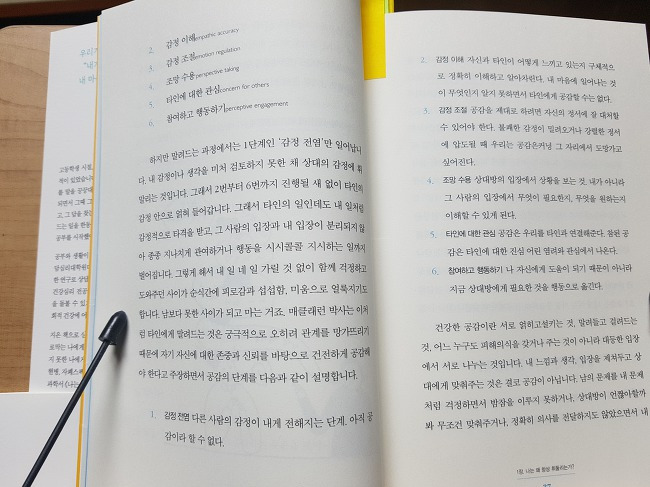 2. 감정 이해empathic accuracy
3. 감정 조절emotion regulation
4. 조망 수용perspective taking
5. 타인에 대한 관심concern for others
6. 참여하고 행동하기perceptive engagement
하지만 말려드는 과정에서는 1단계인 ‘감정 전염’만 일어납니
다. 내 감정이나 생각을 미처 검토하지 못한 채 상대의 감정에 휘
말리는 것입니다. 그래서 2번부터 6번까지 진행될 새 없이 타인의
감정 안으로 얽혀 들어갑니다. 그래서 타인의 일인데도 내 일처럼
감정적으로 타격을 받고, 그 사람의 입장과 내 입장이 분리되지 않
아 종종 지나치게 관여하거나 행동을 시시콜콜 지시하는 일까지
벌어집니다. 그렇게 해서 내 일 네 일 가릴 것 없이 함께 걱정하고
도와주던 사이가 순식간에 피로감과 섭섭함, 미움으로 얼룩지기도
합니다. 남보다 못한 사이가 되고 마는 거죠. 매클래런 박사는 이처
럼 타인에게 말려드는 것은 궁극적으로 오히려 관계를 망가뜨리기
때문에 자기 자신에 대한 존중과 신뢰를 바탕으로 건전하게 공감해
야 한다고 주장하면서 공감의 단계를 다음과 같이 설명합니다.
1. 감정 전염 다른 사람의 감정이 내게 전해지는 단계. 아직 공
감이라 할 수 없다.
2. 감정 이해 자신과 타인이 어떻게 느끼고 있는지 구체적으
로 정확히 이해하고 알아차린다. 내 마음에 일어나는 것
이 무엇인지 알지 못하면서 타인에게 공감할 수는 없다.
3. 감정 조절 공감을 제대로 하려면 자신의 정서에 잘 대처할
수 있어야 한다. 불쾌한 감정이 밀려오거나 강렬한 정서
에 압도될 때 우리는 공감은커녕 그 자리에서 도망가고
싶어진다.
4. 조망 수용 상대방의 입장에서 상황을 보는 것. 내가 아니라
그 사람의 입장에서 무엇이 필요한지, 무엇을 원하는지
이해할 수 있게 된다.
5. 타인에 대한 관심 공감은 우리를 타인과 연결해준다. 참된 공
감은 타인에 대한 진심 어린 염려와 관심에서 나온다.
6. 참여하고 행동하기 나 자신에게 도움이 되기 때문이 아니라
지금 상대방에게 필요한 것을 행동으로 옮긴다.
건강한 공감이란 서로 얽히고설키는 것, 말려들고 길려드는
것, 어느 누구도 피해의식을 갖거나 주는 것이 아니라 대등한 입장
에서 서로 나누는 것입니다. 내 느낌과 생각, 입장을 제쳐두고 상
대에게 맞춰주는 것은 결코 공감이 아닙니다. 남의 문제를 내 문제
처럼 걱정하면서 밤잠을 이루지 못하거나, 상대방이 언짢아할까
봐 무조건 맞춰주거나, 정확히 의사를 전달하지도 않았으면서 내
1장. 나는 왜 항상 휘둘리는가?